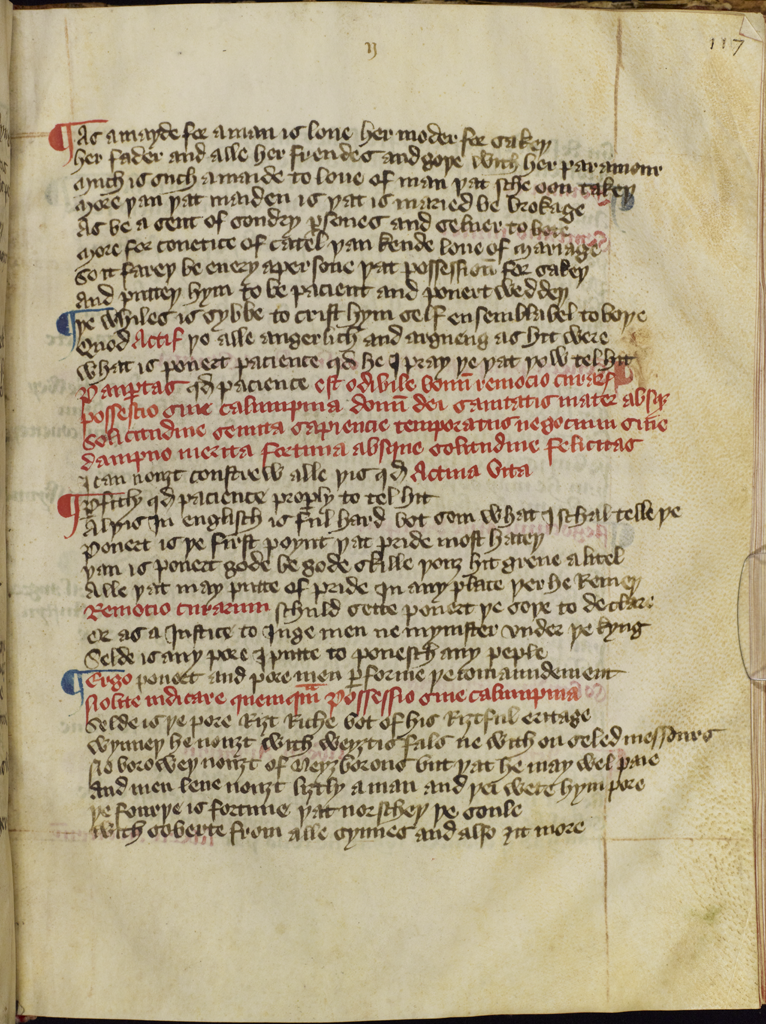 117
¶ As a mayde for a man is loue her moder for sakeþ
her fader and alle her frendes and goþe with her paramour
Mych is such a maide to loue of man þat sche oon takeþ
More þan þat maiden is þat is maried be brokage
As be a sent of sondry ꝑsones and seluer to bote
More for couetice of catel þan kende loue of mariage
So it fareþ be euery a persone þat possessioun for sakeþ
And putteþ hym to be pacient and pouert weddeþ
¶ þe whiles is sybbe to crist hym self en semblabel to boþe
Quod Actif þo alle angerlich and argueng as hit were
What is pouert pacience qd he I pray þe þat þow tel hit
Paupertas qd pacience est odibile bonū remocio curarū
possessio sine calumpnia donū dei sanitatis mater absqꝫ
solicitudine semita sapiencie temporatus negocium sine
dampno incerta fortuna absque solitudine felicitas
I can nouȝt constrew alle þis qd Actiua Vita
¶ Pfitly qd pacience proply to tel hit
Al þis In englisch is ful hard bot som what I schal telle þe
Pouert is þe first poynt þat pride most hateþ
þan is pouert gode be gode skille þouȝ hit greue a litel
Alle þat may putte of pride In any place þer he Reneþ
Remocio curarum schuld sette pouert þe soþe to declare
Or as a Justice to Juge men ne mynister vnder þe kyng
Selde is any pore I putte to ponesch any peple
¶ Ergo pouert and pore men ꝑforme þe comaundement
Nolite iudicare quemqm̄ Possessio sine calumpnia
Selde is þe pore Riȝt Riche bot of his Riȝtful eritage
Wynneþ he nouȝt with weyȝtis fals ne with on seled messours
No boroweþ nouȝt of Neyȝborous but þat he may wel paie
And men lene nouȝt liȝtly a man and þei were hym pore
þe fourþe is fortune þat norscheþ þe soule
With soberte from alle synnes and also ȝit more